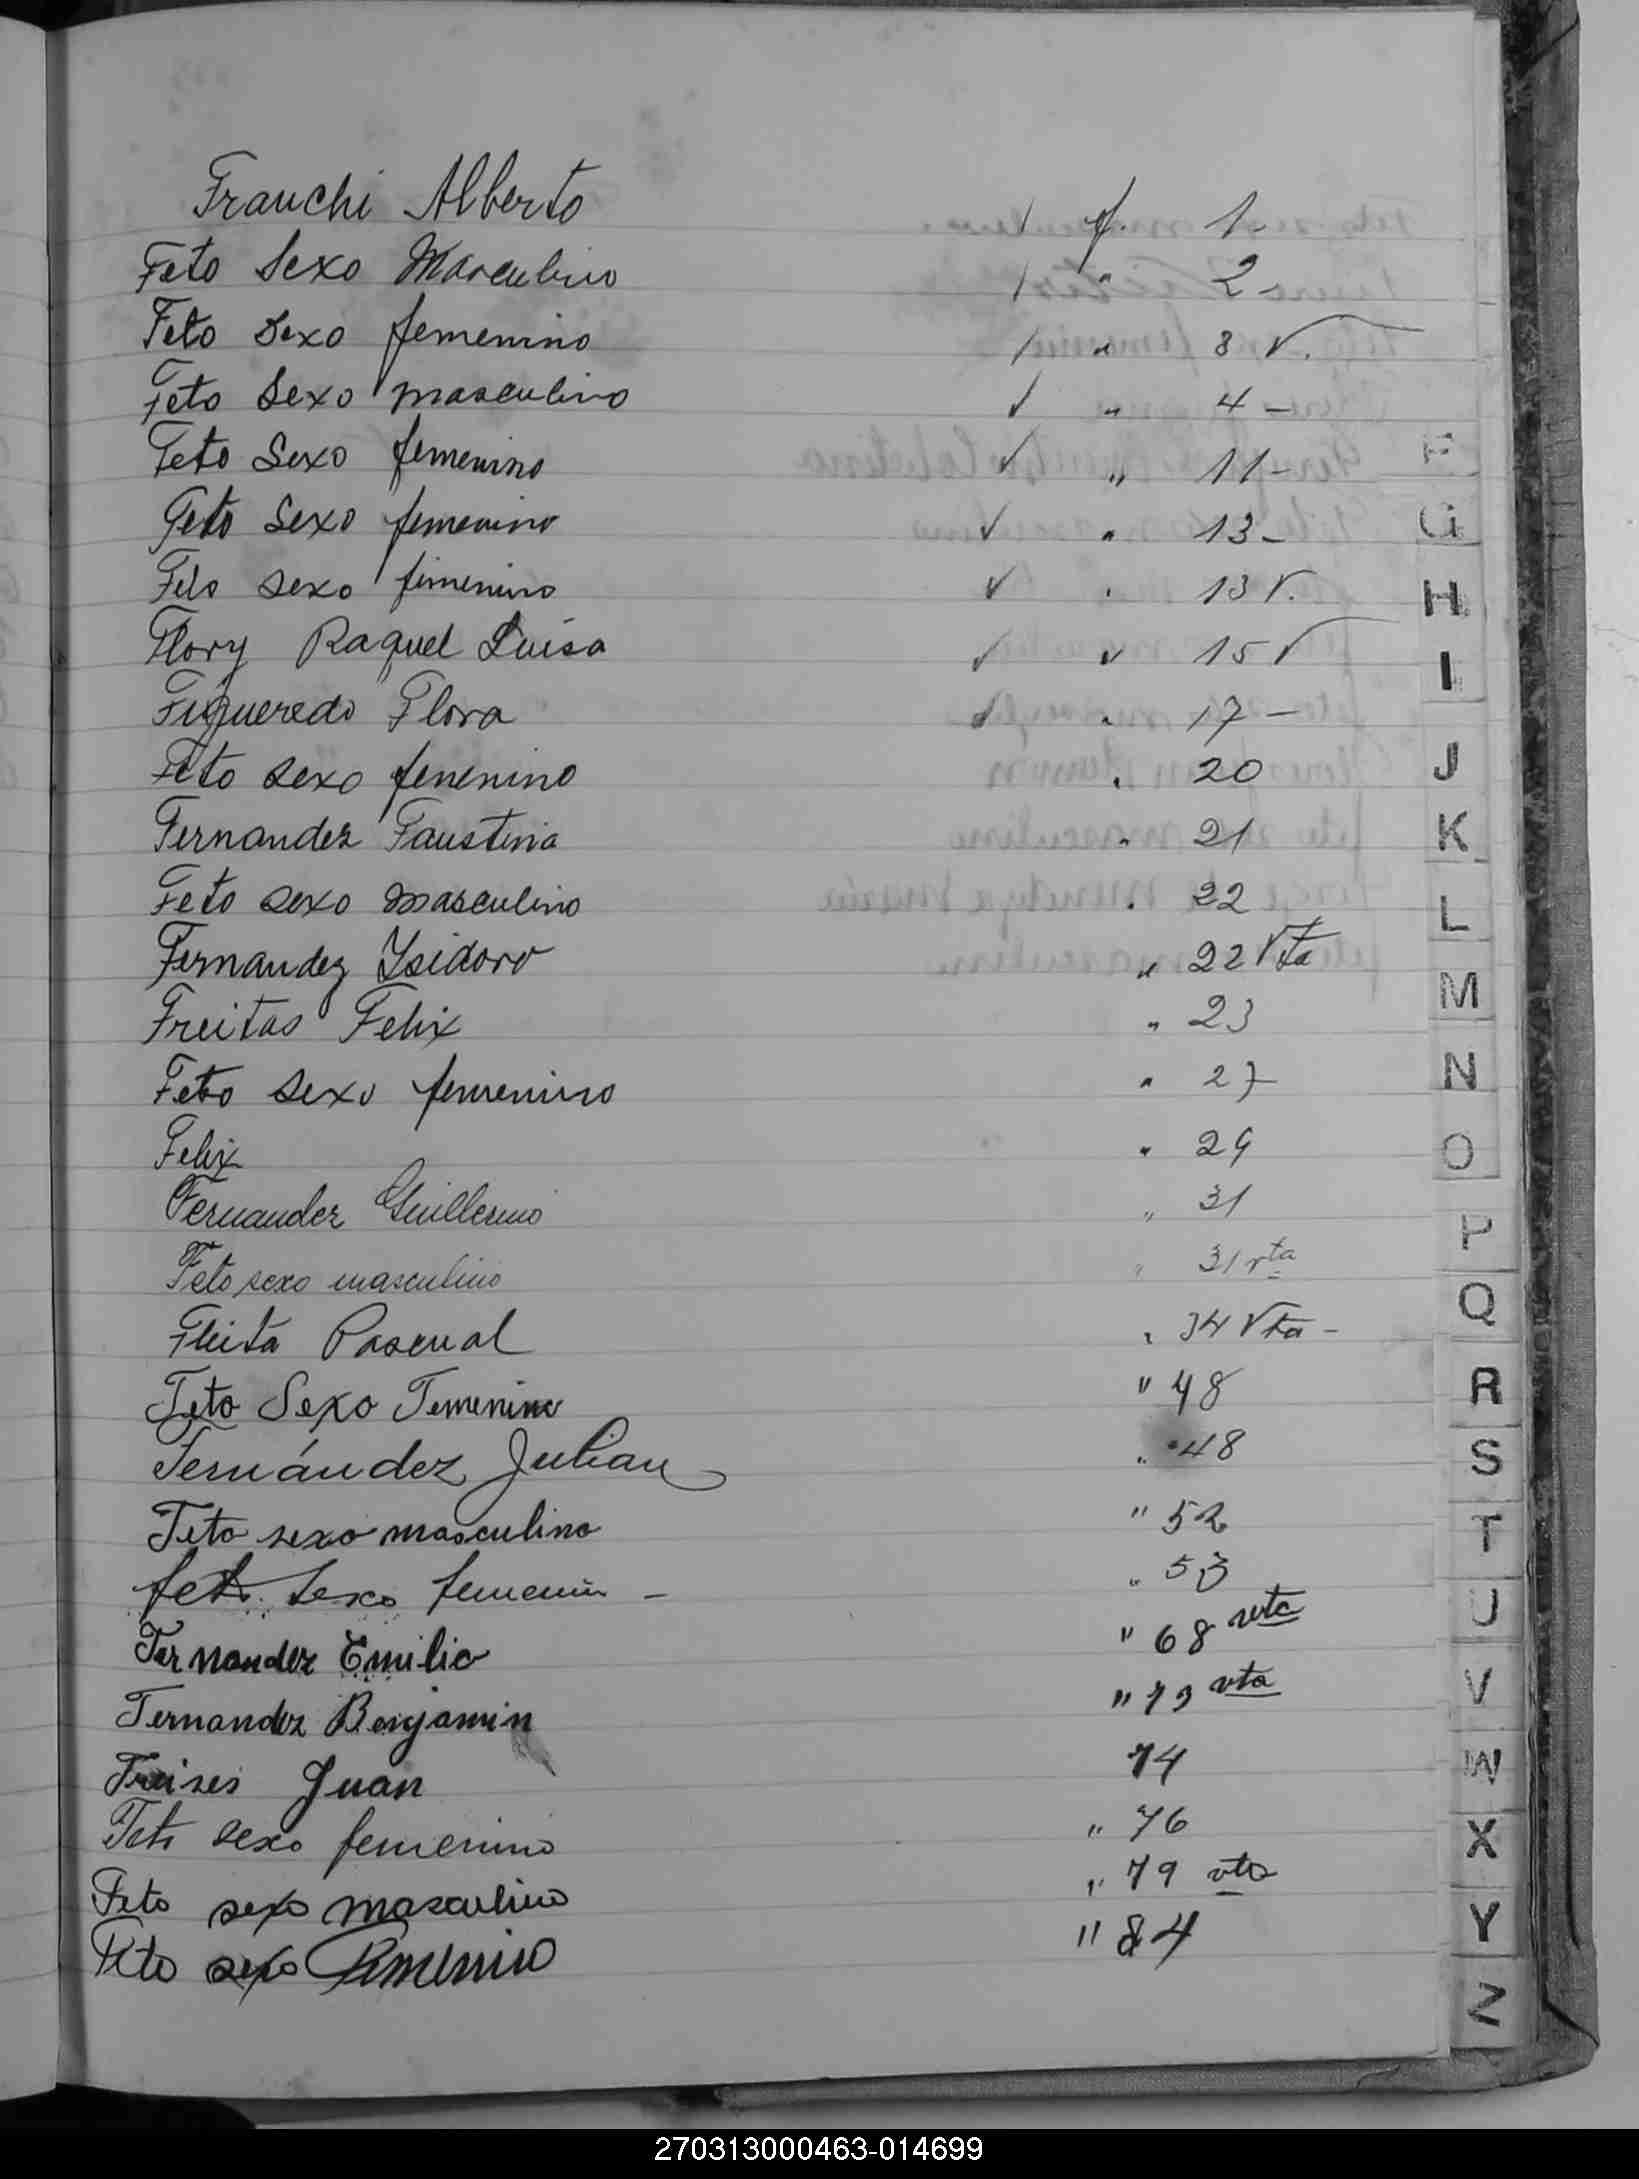 Franchi Alberto √ f. 1-
Feto Sexo Masculino √ " 2-
Feto Sexo femenino √ " 8 V.
Feto Sexo masculino √ " 4 -
Feto Sexo femenino √ " 11-
Feto Sexo femenino √ " 13-
Feto sexo femenino √ " 13 V.
Flory Raquel Luisa √ " 15 V
Figueredo Flora √ " 17 -
Feto sexo fenenino " 20
Fernandez Faustina " 21
Feto sexo masculino " 22
Fernandez Ysidoro " 22 Vta
Freitas Felix " 23
Feto sexo femenino " 27
Felix " 29
Fernandez Guillermo " 31
Feto sexo masculino " 31 vta
Fleita Pascual " 34 Vta -
Feto Sexo Femenino " 48
Fernández Julian " 48
Feto sexo masculino " 52
feto Sexo femenin - " 53
Fernandez Emilio " 68 vta
Fernandez Benjamin " 73 vta
Juan 74
Feto sexo femenino " 76
Feto sexo masculino " 79 vta
Feto sexo Femenino " 84
F
G
H
I
J
K
L
M
N
O
P
Q
R
S
T
U
V
W
X
Y
Z
270313000463-014699